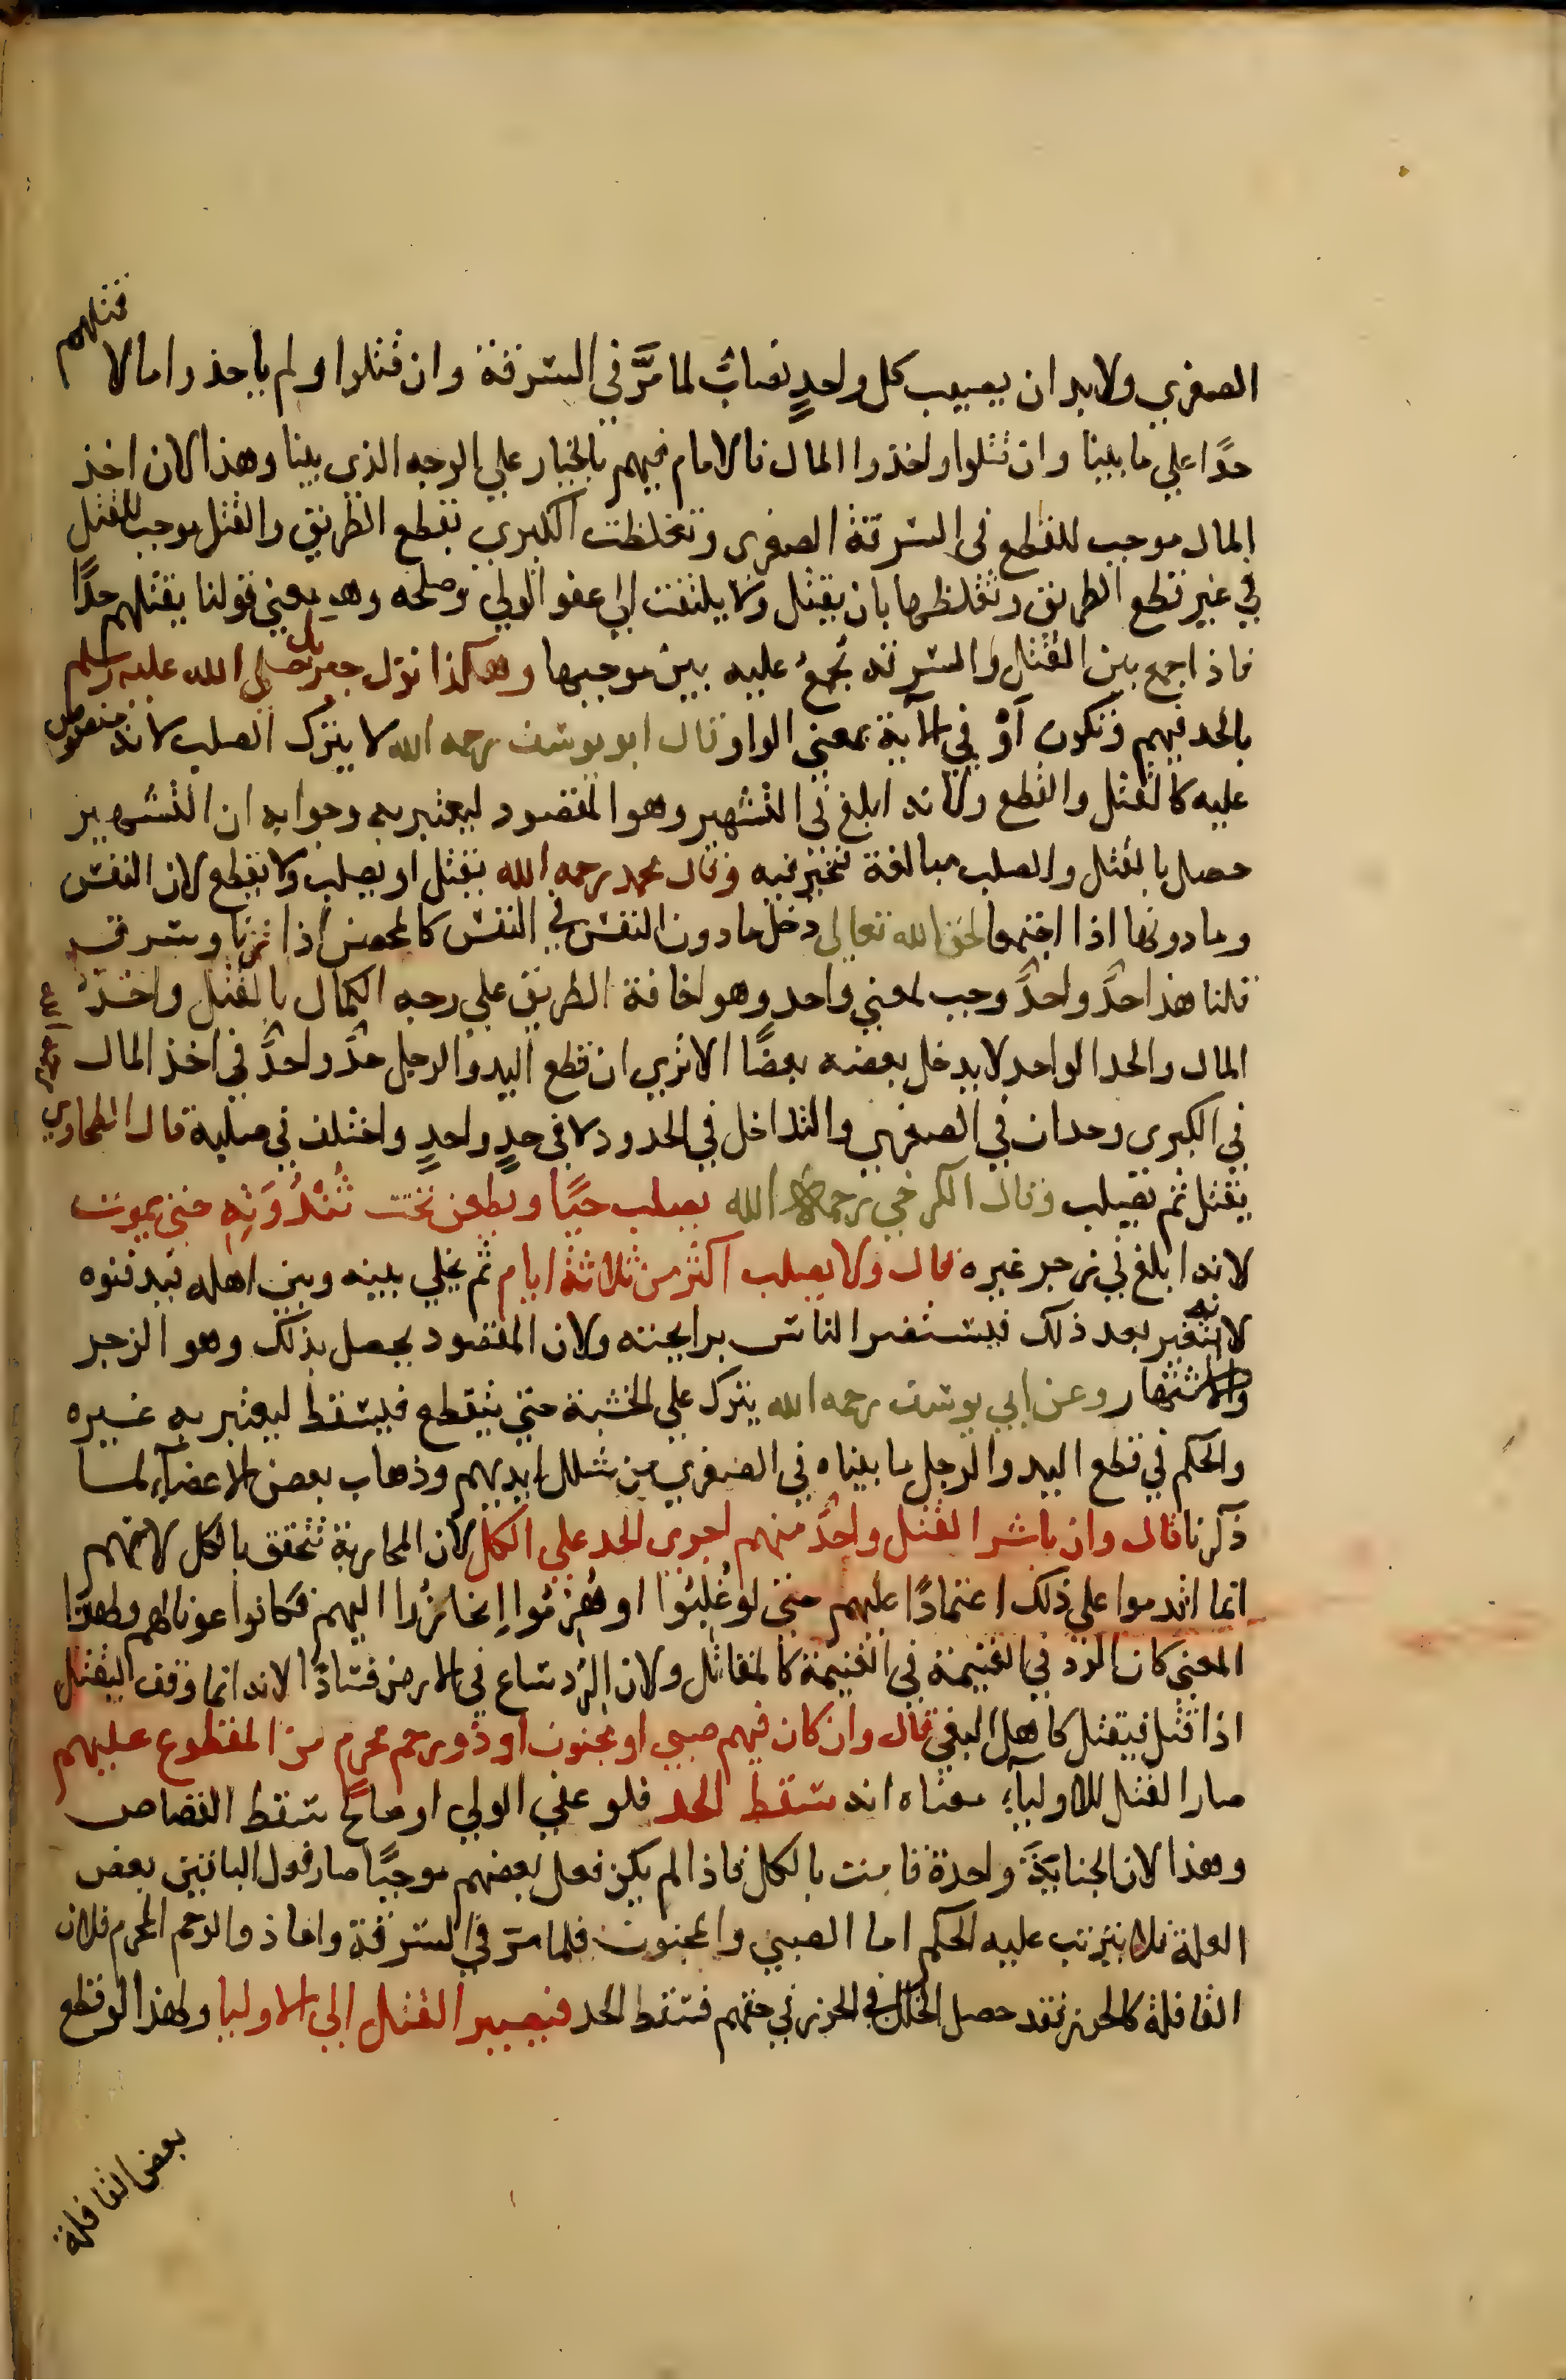 الصغرى ولابد ان يصيب كل واحدٍ نصابٌ لما مرَّ في السرقة وان قتلوا ولم ياخذوا مالا قتلهم
حدًا على ما بينا وان قتلوا واخذوا المال فالامام فيهم بالخيار على الوجه الذي بينا وهذا لان اخذ
المال موجب للقطع في السرقة الصغرى وتغلظت الكبرى بقطع الطريق والقتل موجب للقتل
في غير قطع الطريق وتغلظها بان يقتل ولا يلتفت الى عفو الولي وصلحه وهو معنى قولنا يقتلهم حدًا
فاذا جمع بين القتل والسرقة يجمع عليه بين موجبها وهكذا نزل جبريل صلى الله عليه وسلم
بالحد فيهم وتكون أوْ في الآية بمعنى الواو وقال ابو يوسف رحمه الله لا يترك الصلب لانه منصوص
عليه كالقتل والقطع ولانه ابلغ في التشهير وهو المقصود ليعتبر به وجوابه ان التشهير
حصل بالقتل والصلب مبالغة فيخير فيه وقال محمد رحمه الله يقتل او يصلب ولا يقطع لان النفس
وما دونها اذا اجتمعا لحق الله تعالى دخل ما دون النفس في النفس كالمحصن اذا زنا وسرق
قلنا هذا حدٌ واحدٌ وجب لمعنى واحد وهو اخافة الطريق على وجه الكمال بالقتل واخذ
المال والحد الواحد لا يدخل بعضه بعضًا الا ترى ان قطع اليد والرجل حدٌ واحدٌ في اخذ المال
في الكبرى وحدان في الصغرى والتداخل في الحدود لا في حدٍ واحدٍ واختلف في صلبه قال الطحاوي
يقتل ثم يصلب وقال الكرخي رحمه الله يصلب حيًا ويطعن تحت ثُنْدُوَتِهِ حتى يموت
لانه ابلغ في زجر غيره قال ولا يصلب اكثر من ثلاثة ايام ثم يخلى بينه وبين اهله فيدفنوه
لانه يتغير بعد ذلك فيستضر الناس برايحته ولان المقصود يحصل بذلك وهو الزجر
والاشتهار وعن ابي يوسف رحمه الله يترك على الخشبة حتى ينقطع فيسقط ليعتبر به غيره
والحكم في قطع اليد والرجل ما بيناه في الصغرى من شلل ايديهم وذهاب بعض الاعضآء لما
ذكرنا قال وان باشر القتل واحدٌ منهم اجرى الحد على الكل لان المحاربة تتحقق بالكل لانهم
انما اقدموا على ذلك اعتمادًا عليهم حتى لو غُلبُوا او هُزمُوا إنحازُوا اليهم فكانوا عونا لهم ولهذا
المعنى كان الردء في الغنيمة في الغنيمة كالمقاتل ولان الردء ساع في الارض فسادًا لانه انما وقف ليقتل
اذا قتل فيقتل كاهل البغي قال وان كان فيهم صبي او مجنون او ذو رحم محرم من المقطوع عليهم
صار القتل للاوليآء معناه انه سقط الحد فلو عفي الولي او صالح سقط القصاص
وهذا لان الجنايَةَ واحدة قامت بالكل فاذا لم يكن فعل بعضهم موجبًا صار فعل الباقين بعض
العلة فلا يترتب عليه الحكم اما الصبي والمجنون فلما مر في السرقة واما ذو الرحم المحرم فلان
القافلة كالحرز فقد حصل الخلل في الحرز في حقهم فسقط الحد فيصير القتل الى الاوليا ولهذا لو قطع
بعض القافلة